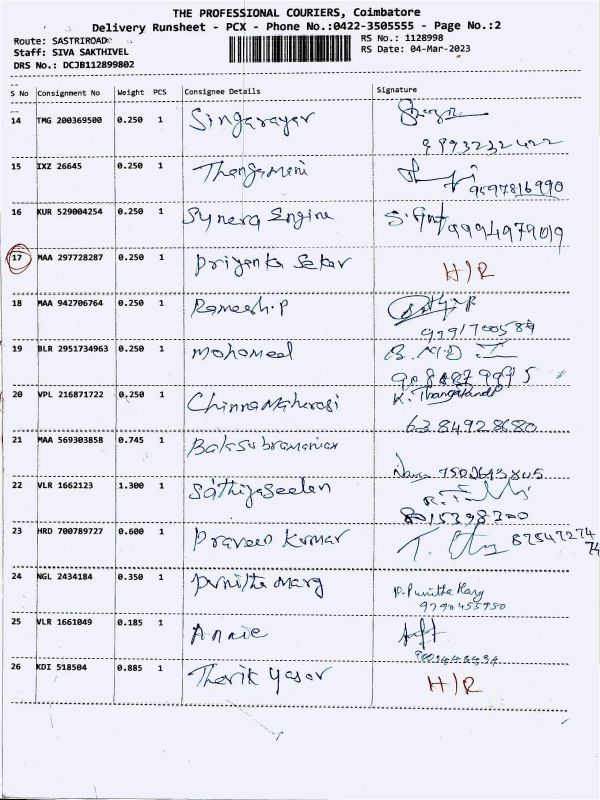 THE PROFESSIONAL COURIERS, Coimbatore
Delivery Runsheet - PCX - Phone No.:0422-3505555 - Page No.:2
Route: SASTRIROAD RS No.: 1128998
Staff: SIVA SAKTHIVEL RS Date: 04-Mar-2023
DRS No.: DCJB112899802
S No Consignment No Weight PCS Consignee Details Signature
14 TMG 200369500 0.250 1 Singarayar
15 IXZ 26645 0.250 1 Thangamani 9597816990
16 KUR 529004254 0.250 1 Synera Engine 9994979019
17 MAA 297728287 0.250 1 Priyanka Sekar H/R
18 MAA 942706764 0.250 1 Ramesh.P
19 BLR 2951734963 0.250 1 Mohamed
20 VPL 216871722 0.250 1 K. 6384928680
21 MAA 569303858 0.745 1 Balasubramanian
22 VLR 1662123 1.300 1 Sathiyaseelan
23 HRD 700789727 0.600 1 Praveen Kumar 8754727474
24 NGL 2434184 0.350 1 Punitha Marg P. Punitha
9790455950
25 VLR 1661049 0.185 1 Annie
26 KDI 518504 0.885 1 Tharik Yasar H/R